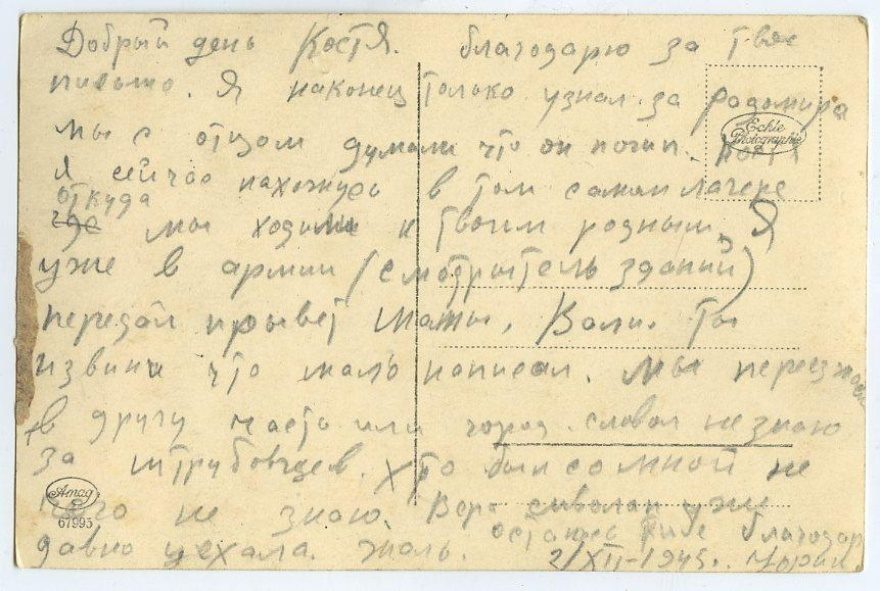 Добрый день Костя. благодарю за твое
письмо. Я наконец только узнал за радомира
Echte Photographie
мы с отцом думали что он погип. Костя
я сейчас нахожусь в том самам лагере
откуда
где мы ходили к твоим родным. Я
уже в армии (смотритель зданий)
передай прывет Мамы, Вали. Ты
извини что мало написал. Мы переезжаем
в другу часть или город словом не знаю
за штрубовцев. хто был со мной не
чего не знаю. Вера уже
Amag
67993
остаюсь благодар
давно уехала. жаль. 2/XII-1945.